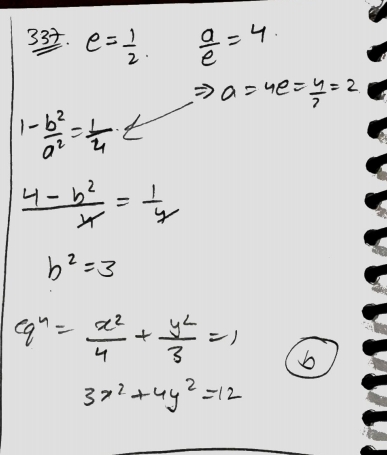 337. e = 1/2. a/e = 4.
⇒ a = 4e = 4/2 = 2
1 - b²/a² = 1/4
(4 - b²)/4 = 1/4
b² = 3
eqⁿ = x²/4 + y²/3 = 1
(b)
3x² + 4y² = 12